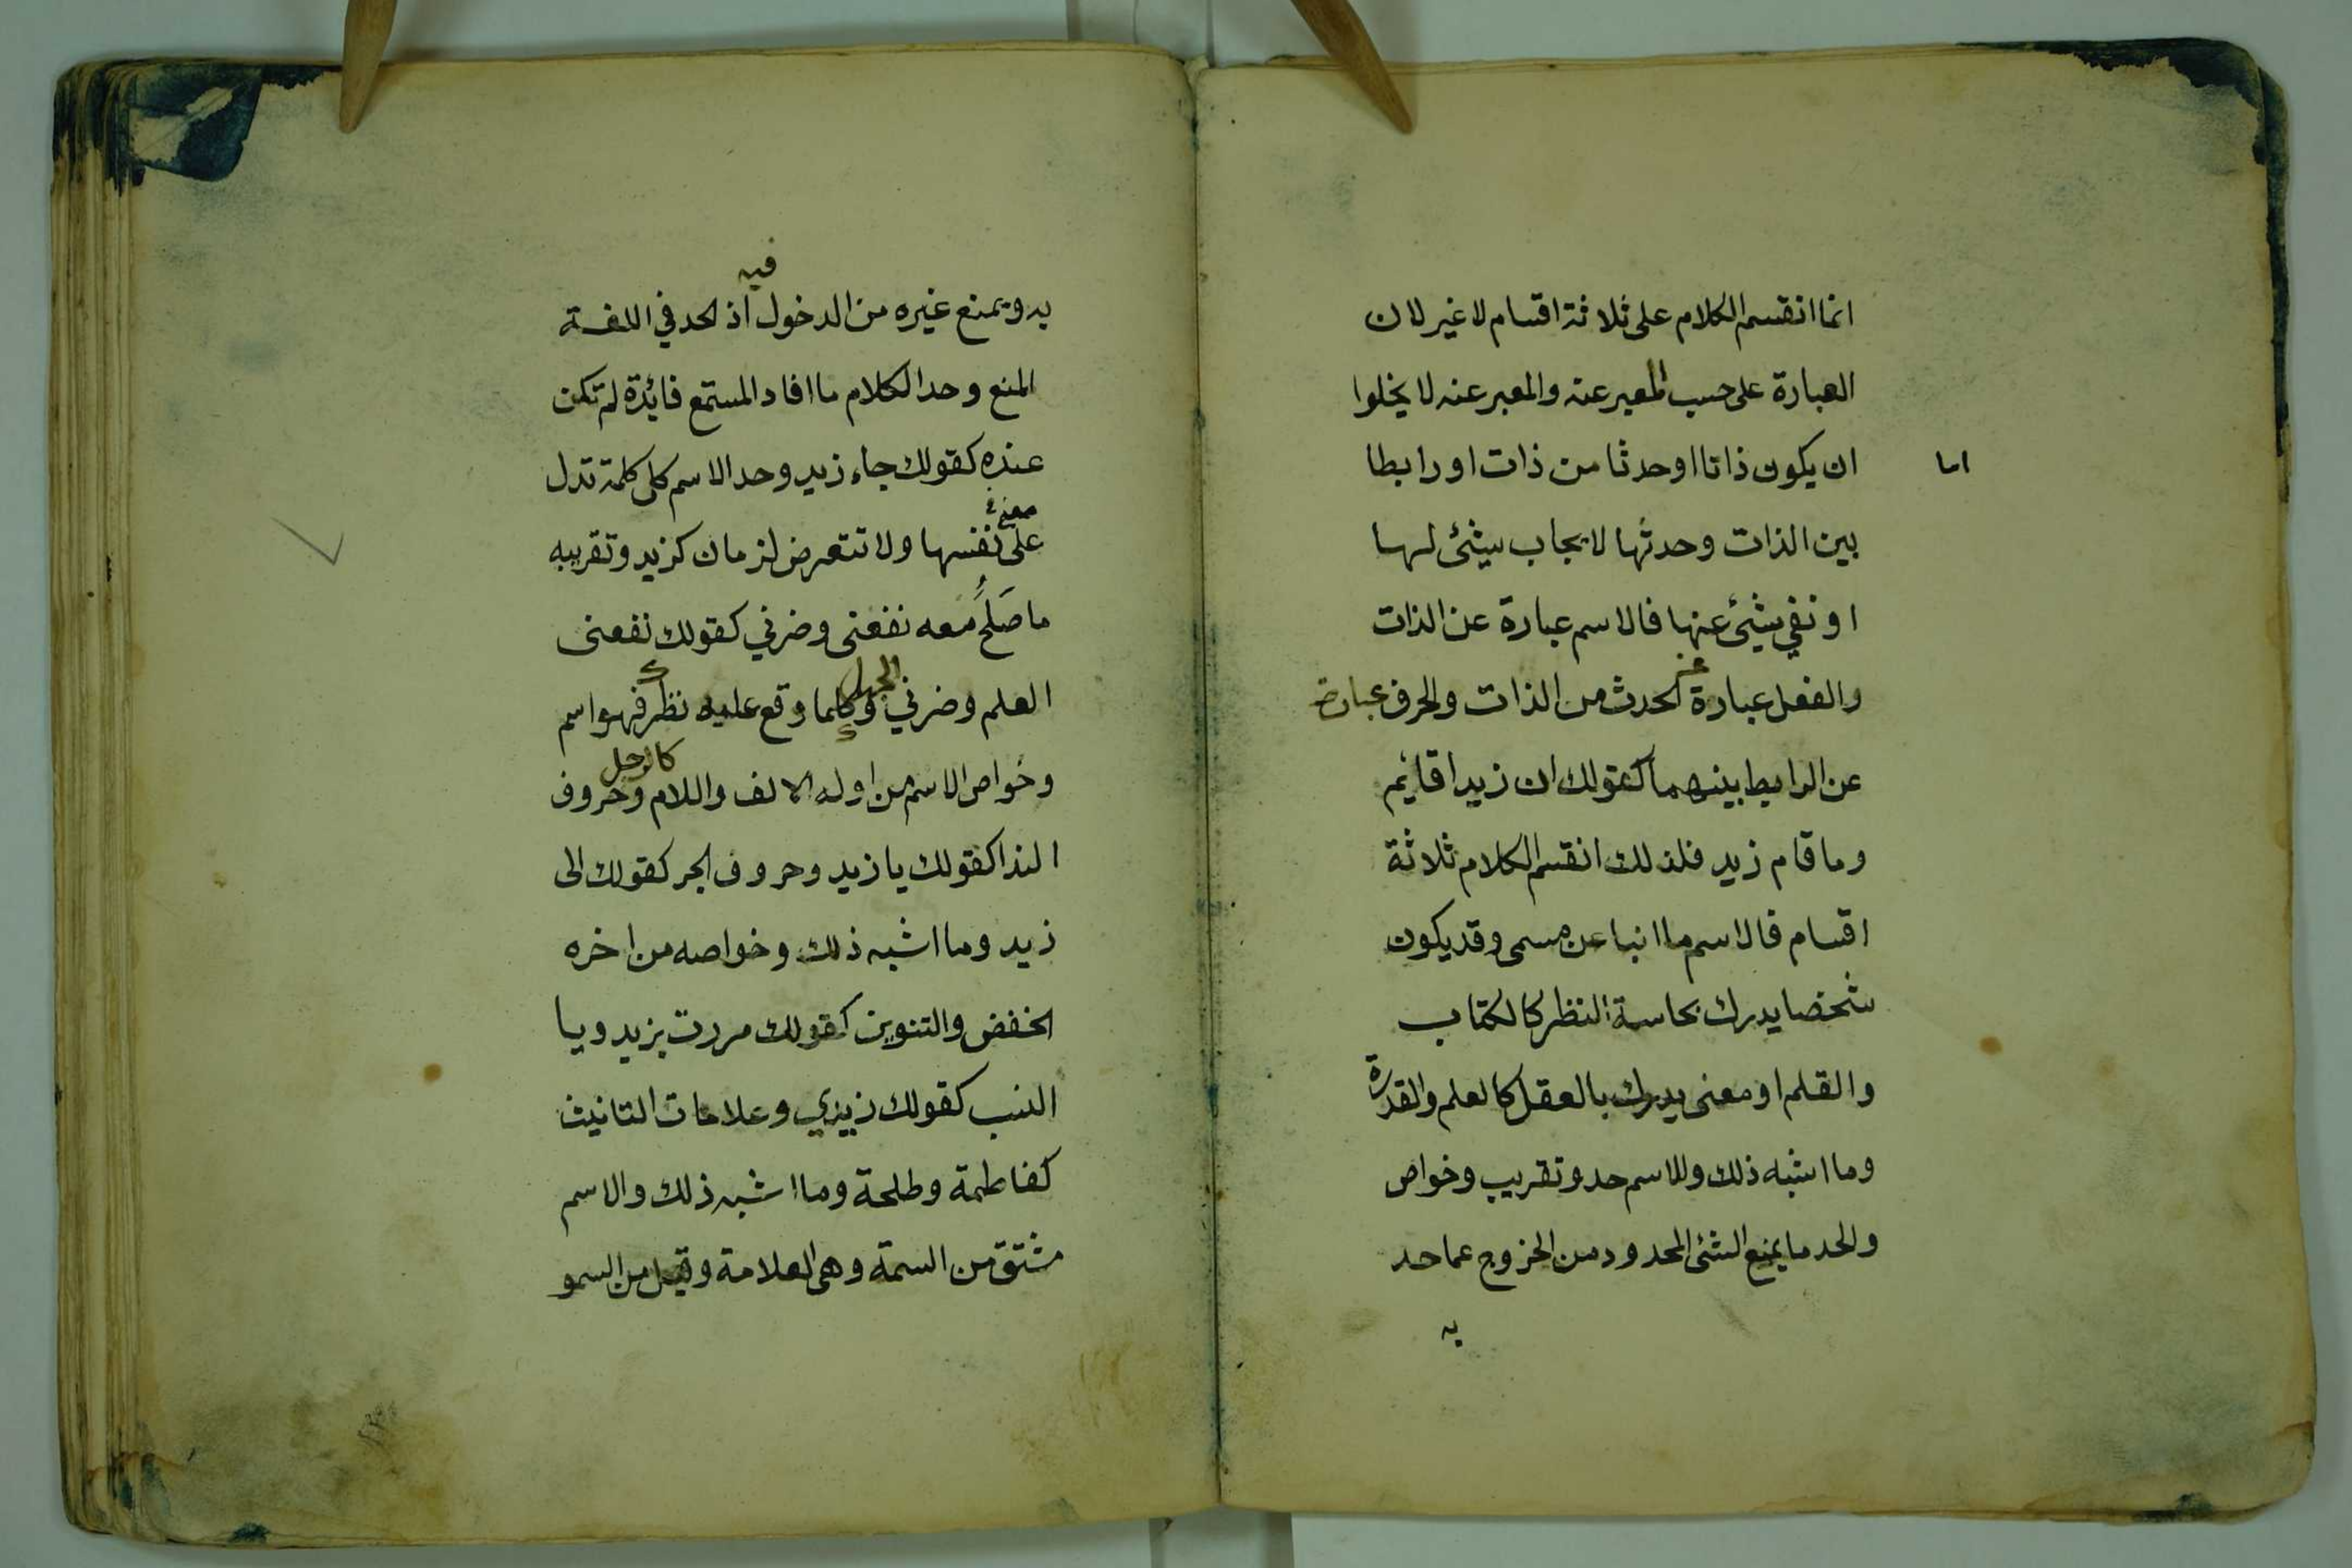 انما انقسم الكلام على ثلاثة اقسام لا غير لان
العبارة على حسب المعبر عنه والمعبر عنه لا يخلوا
اما
ان يكون ذاتا او حدثا من ذات او رابطا
بين الذات وحدثها لايجاب شئ لها
او نفي شئ عنها فالاسم عبارة عن الذات
والفعل عبارة عن الحدث من الذات والحرف عبارة
عن الرابط بينهما كقولك ان زيدا قائم
وما قام زيد فلذلك انقسم الكلام ثلاثة
اقسام فالاسم ما انبا عن مسمى وقد يكون
شخصا يدرك بحاسة النظر كالكتاب
والقلم او معنى يدرك بالعقل كالعلم والقدرة
وما اشبه ذلك وللاسم حد وتقريب وخواص
والحد ما يمنع الشئ المحدود من الخروج عما حد
به
به ويمنع غيره من الدخول فيه اذ الحد في اللغة
المنع وحد الكلام ما افاد المستمع فائدة لم تكن
عنده كقولك جاء زيد وحد الاسم كل كلمة تدل
على معنى في نفسها ولا تتعرض لزمان كزيد وتقريبه
ما صَلَحَ معه نفعنى وضرني كقولك نفعنى
العلم وضرني الجهل وكلما وقع عليه نظرك فهو اسم
وخواص الاسم من اوله الالف واللام كالرجل وحروف
الندا كقولك يا زيد وحروف الجر كقولك الى
زيد وما اشبه ذلك وخواصه من اخره
الخفض والتنوين كقولك مررت بزيد ويا
النسب كقولك زبيدي وعلامات التانيث
كفاطمة وطلحة وما اشبه ذلك والاسم
مشتق من السمة وهى العلامة وقيل من السمو